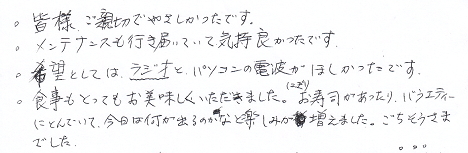 。皆様、ご親切でやさしかったです。
。メンテナンスも行き届いていて気持良かったです。
。希望としては、ラジオと、パソコンの電波がほしかったです。
。食事もとってもお美味しくいただきました。お寿司があったり、バラエティー
にとんでいて、今日は何が出るのかなと楽しみが増えました。ごちそうさま
でした。